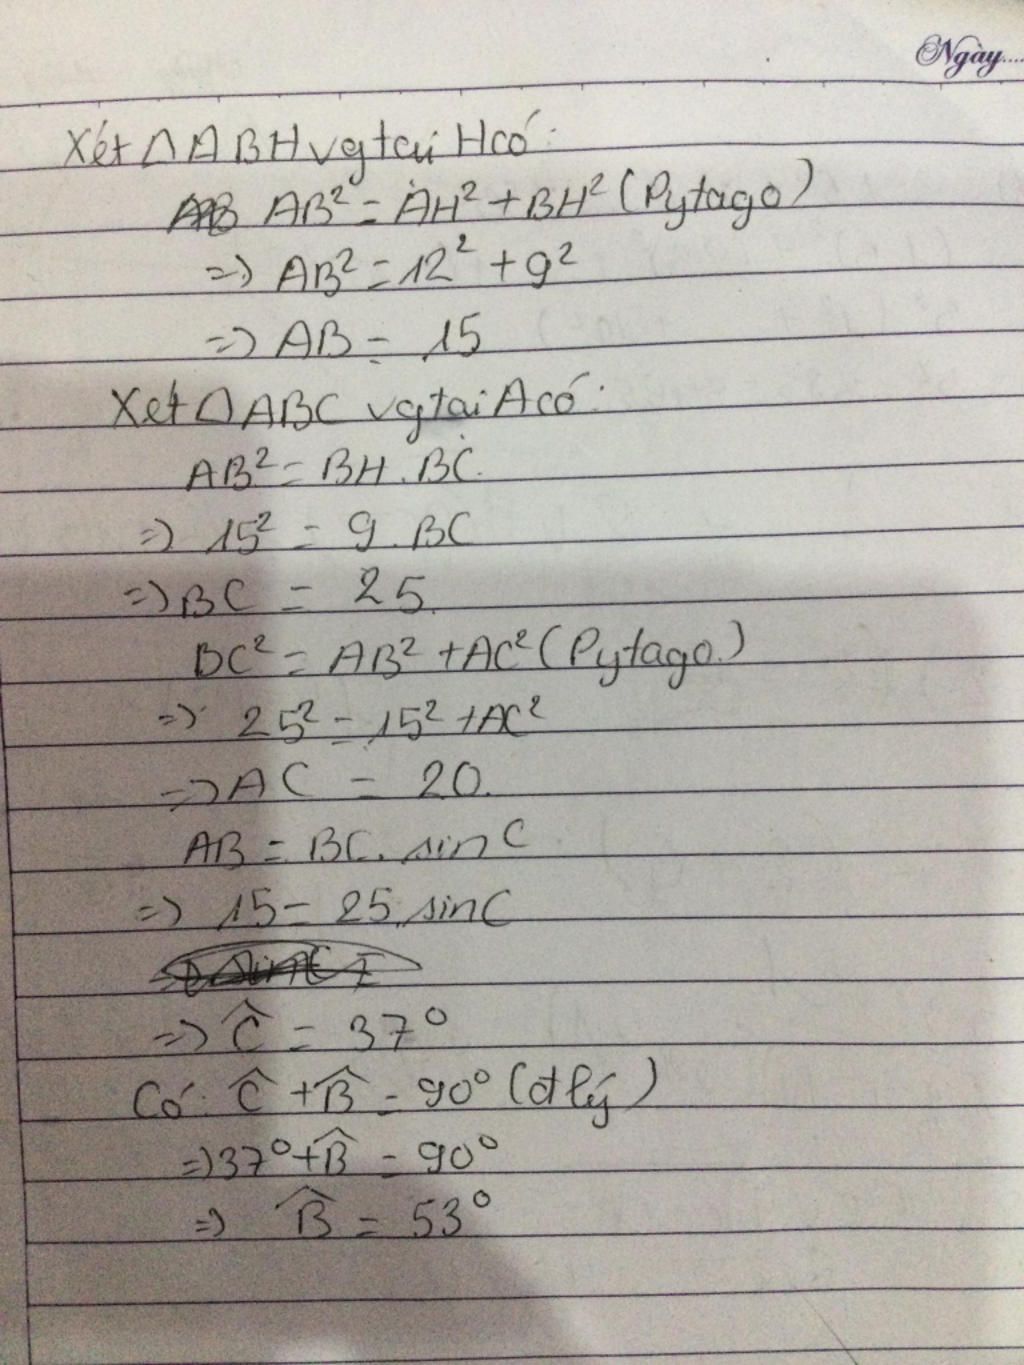 Ngày....
Xét △ABH vg tại H có:
AB² = AH² + BH² (Pytago)
=> AB² = 12² + 9²
=> AB = 15
Xét △ABC vg tại A có:
AB² = BH . BC.
=> 15² = 9 . BC
=> BC = 25.
BC² = AB² + AC² (Pytago.)
=> 25² = 15² + AC²
=> AC = 20.
AB = BC . sin C
=> 15 = 25 . sin C
=> Ĉ = 37°
Có: Ĉ + B̂ = 90° (đlý)
=> 37° + B̂ = 90°
=> B̂ = 53°